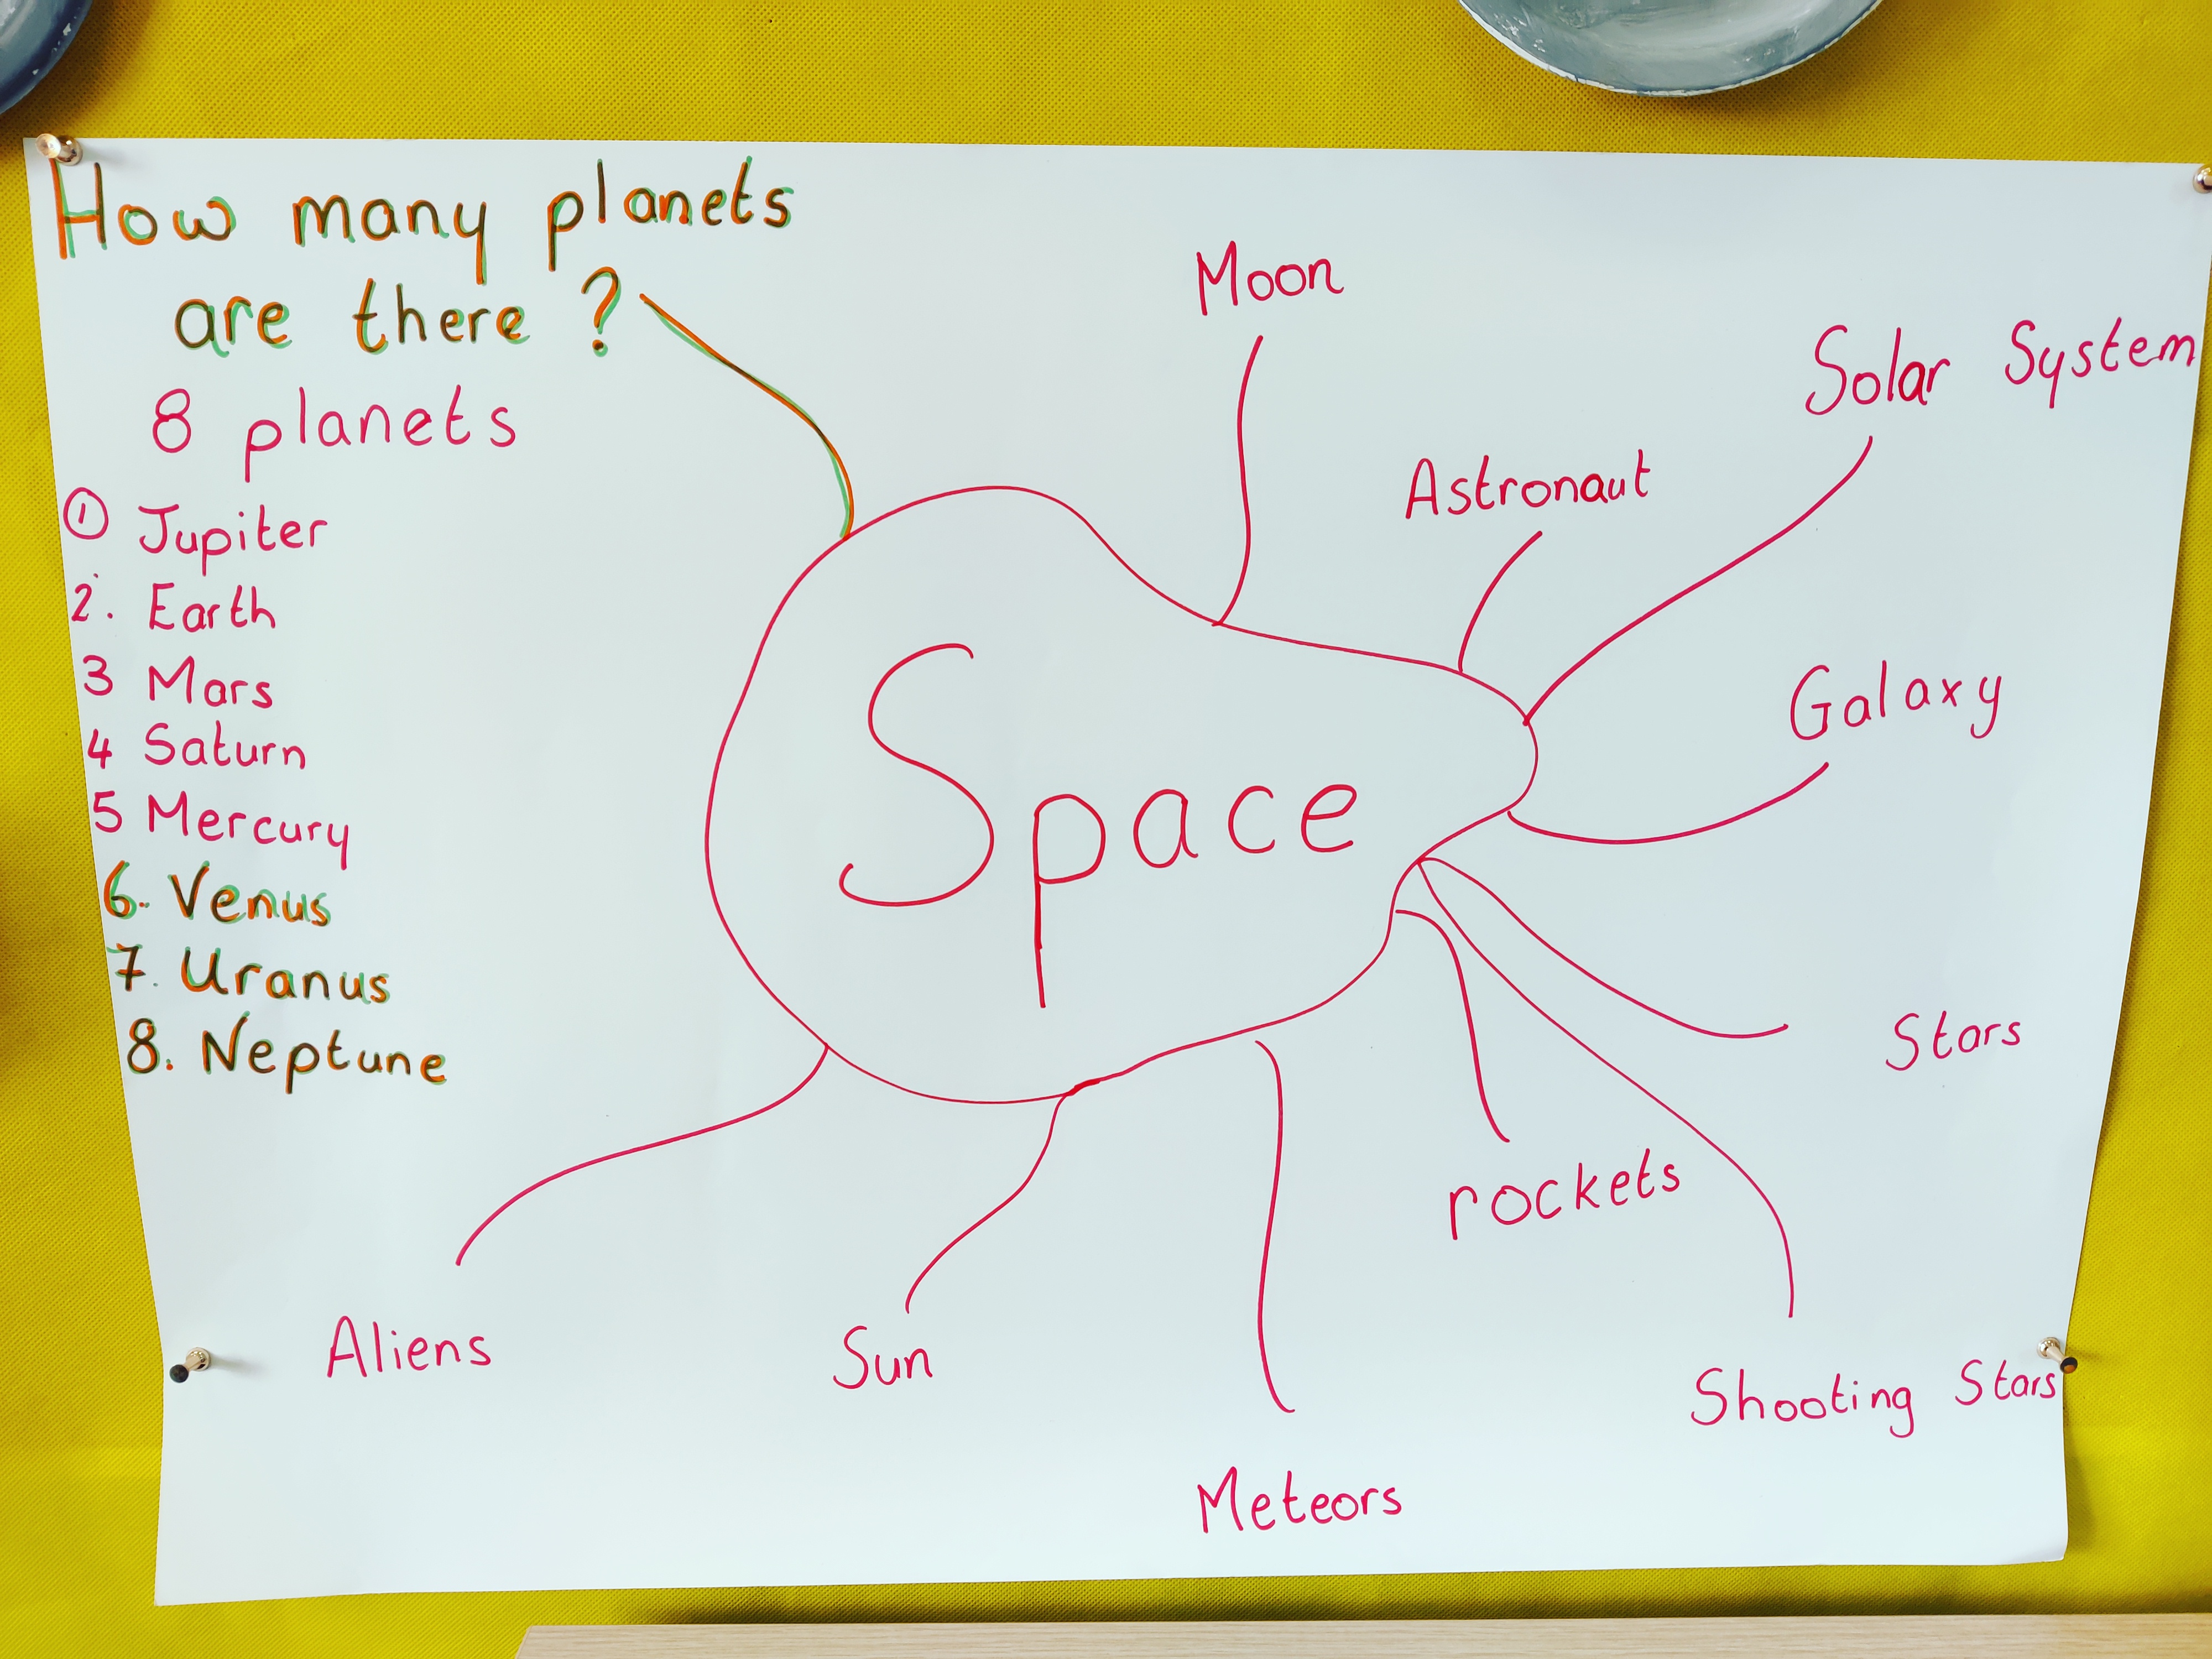 How many planets
are there ?
8 planets
① Jupiter
2. Earth
3 Mars
4 Saturn
5 Mercury
6. Venus
7. Uranus
8. Neptune
Moon
Solar System
Astronaut
Galaxy
Space
Stars
rockets
Shooting Stars
Aliens
Sun
Meteors